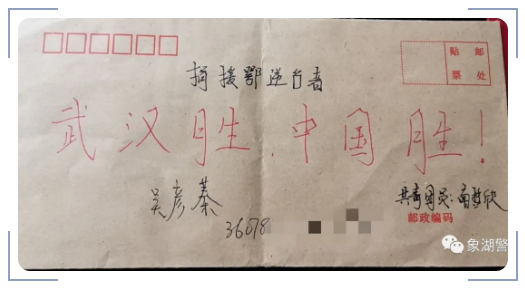 贴 邮
票 处
捐援鄂逆行者
武汉胜,中国胜!
吴彦蓁
共青团员:
36098
邮政编码
象湖警